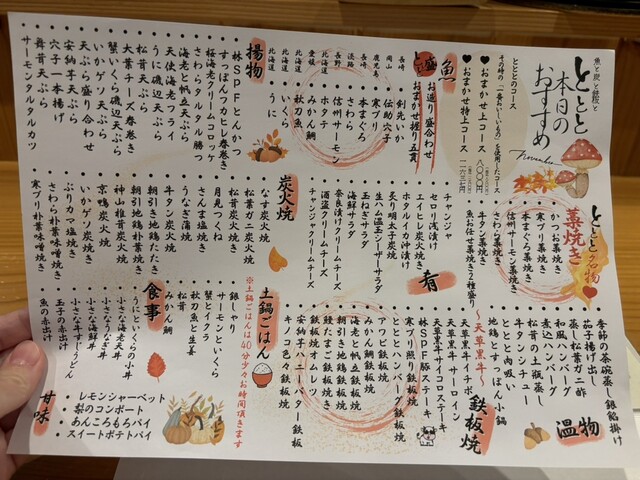 魚と炭と鉄板と
ととと
本日の
おすすめ
とととのコース
その時の「一番おいしいもの」を使用したコース
♥おまかせ上コース 八〇〇〇円
♥おまかせ特上コース 一二六三〇円
魚
とと盛
お造り盛合わせ
おまかせ握り五貫
長崎 剣先いか
岡山 伝助穴子
鹿児島 寒ブリ
長崎 本まぐろ
淡路 さわら
長野 信州サーモン
北海道 ホタテ
愛媛 みかん鯛
北海道 秋刀魚
北海道 いくら
北海道 うに
揚物
林SPFとんかつ
すっぽんカニ春巻き
桜海老クリームコロッケ
さわらタルタル勝つ
海老と帆立天ぷら
天使海老フライ
うに磯辺天ぷら
松茸天ぷら
大葉チーズ春巻き
蟹いくら磯辺天ぷら
いかゲソ天ぷら
天ぷら盛り合わせ
安納芋天ぷら
穴子一本揚げ
舞茸天ぷら
サーモンタルタルカツ
とととの名物♥
藁焼き
かつお藁焼き
寒ブリ藁焼き
本まぐろ藁焼き
信州サーモン藁焼き
さわら藁焼き
牛タン藁焼き
魚お任せ藁焼き2種盛り
肴
チャンジャ
セロリ浅漬け
エイヒレ炭火焼き
ホタルイカ沖漬け
炙り明太子
生ハム温玉シーザーサラダ
玉ねぎサラダ
海鮮サラダ
奈良漬けクリームチーズ
酒盗クリームチーズ
チャンジャクリームチーズ
炭火焼
なす炭火焼
松葉ガニ炭火焼
松茸炭火焼
月見つくね
さんま塩焼き
うなぎ蒲焼
牛タン炭火焼
朝引き地鶏たたき
朝引き地鶏朴葉焼き
神山椎茸炭火焼
京鴨炭火焼
いかゲソ炭焼き
ぶりカマ塩焼き
さわら朴葉味噌焼き
寒ブリ朴葉味噌焼き
温物
季節の茶碗蒸し銀餡掛け
茄子揚げ出し
蒸し松葉ガニ酢
和風ハンバーグ
煮込ハンバーグ
松茸の土瓶蒸し
牛タンシチュー
とととと肉吸い
地鶏とすっぽん小鍋
鉄板焼
〜天草黒牛〜
天草黒牛イチボ
天草黒牛サーロイン
天草黒牛サイコロステーキ
林SPF豚ステーキ
寒ブリ照り鉄板焼
とととハンバーグ鉄板焼
アワビ鉄板焼
みかん鯛鉄板焼
海老と帆立鉄板焼
朝引き地鶏鉄板焼
鰻たまご鉄板焼き
鉄板焼オムレツ
安納芋ハニーバター鉄板
キノコ色々鉄板焼
土鍋ごはん
※土鍋ごはんは40分少々お時間頂きます
銀しゃり
サーモンといくら
蟹とイクラ
秋刀魚と生姜
松茸
みかん鯛
食事
うにといくらの小丼
小さな海老天丼
小さなうな丼
小さな海鮮丼
小さな牛すじうどん
玉子の赤出汁
魚の赤出汁
甘味
・レモンシャーベット
・梨のコンポート
・あんころもちパイ
・スイートポテトパイ